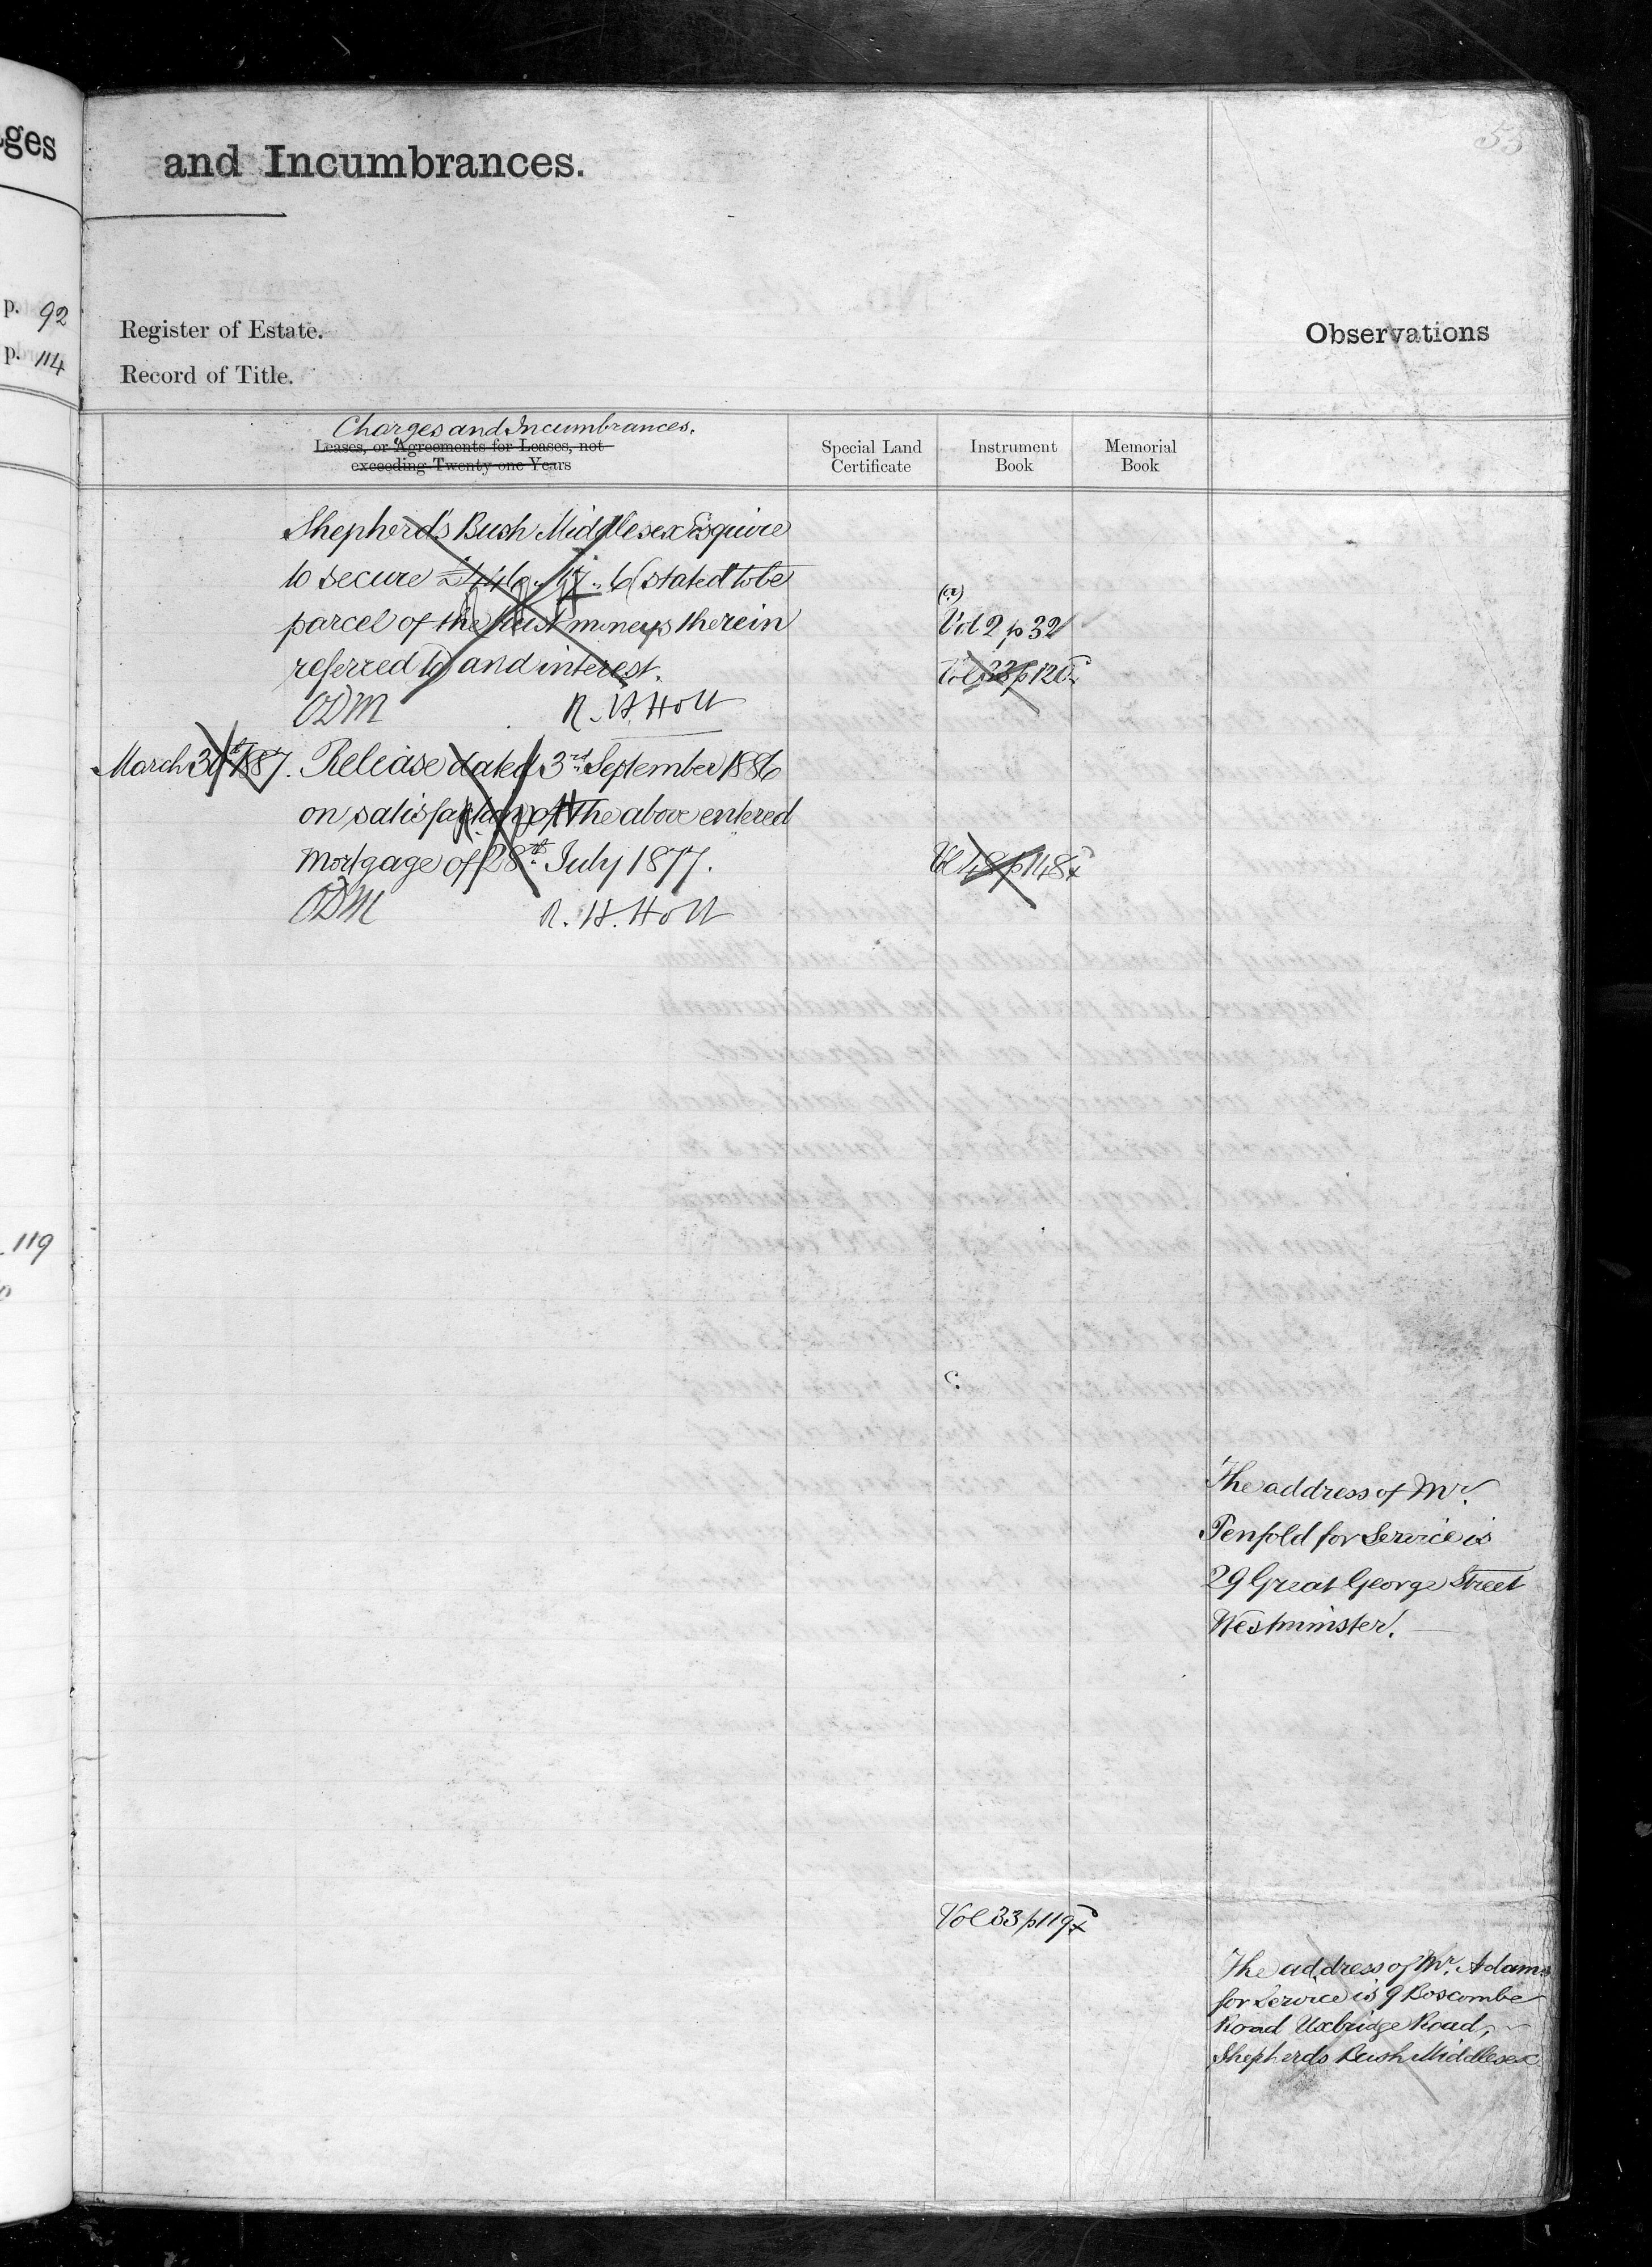 ges
and Incumbrances.
55
p. 92
p. 114
Register of Estate.
Record of Title.
Observations
Charges and Incumbrances.
Leases, or Agreements for Leases, not
exceeding Twenty one Years
Special Land
Certificate
Instrument
Book
Memorial
Book
Shepherd's Bush Middlesex Esquire
to secure £446. 17. 6 (stated to be
parcel of the trust moneys therein
(a)
Vol 2 p 32
referred to) and interest.
Vol 33 p 120
ODM R. H. Holt
March 30th 1887. Release dated 3rd September 1886
on satisfaction of the above entered
Mortgage of 28th July 1877.
Vol 48 p 148
ODM R. H. Holt
119
c.
The address of Mr.
Penfold for Service is
29 Great George Street
Westminster.
Vol 33 p 119
The address of Mr. Adams
for Service is 9 Boscombe
Road Uxbridge Road,
Shepherds Bush Middlesex